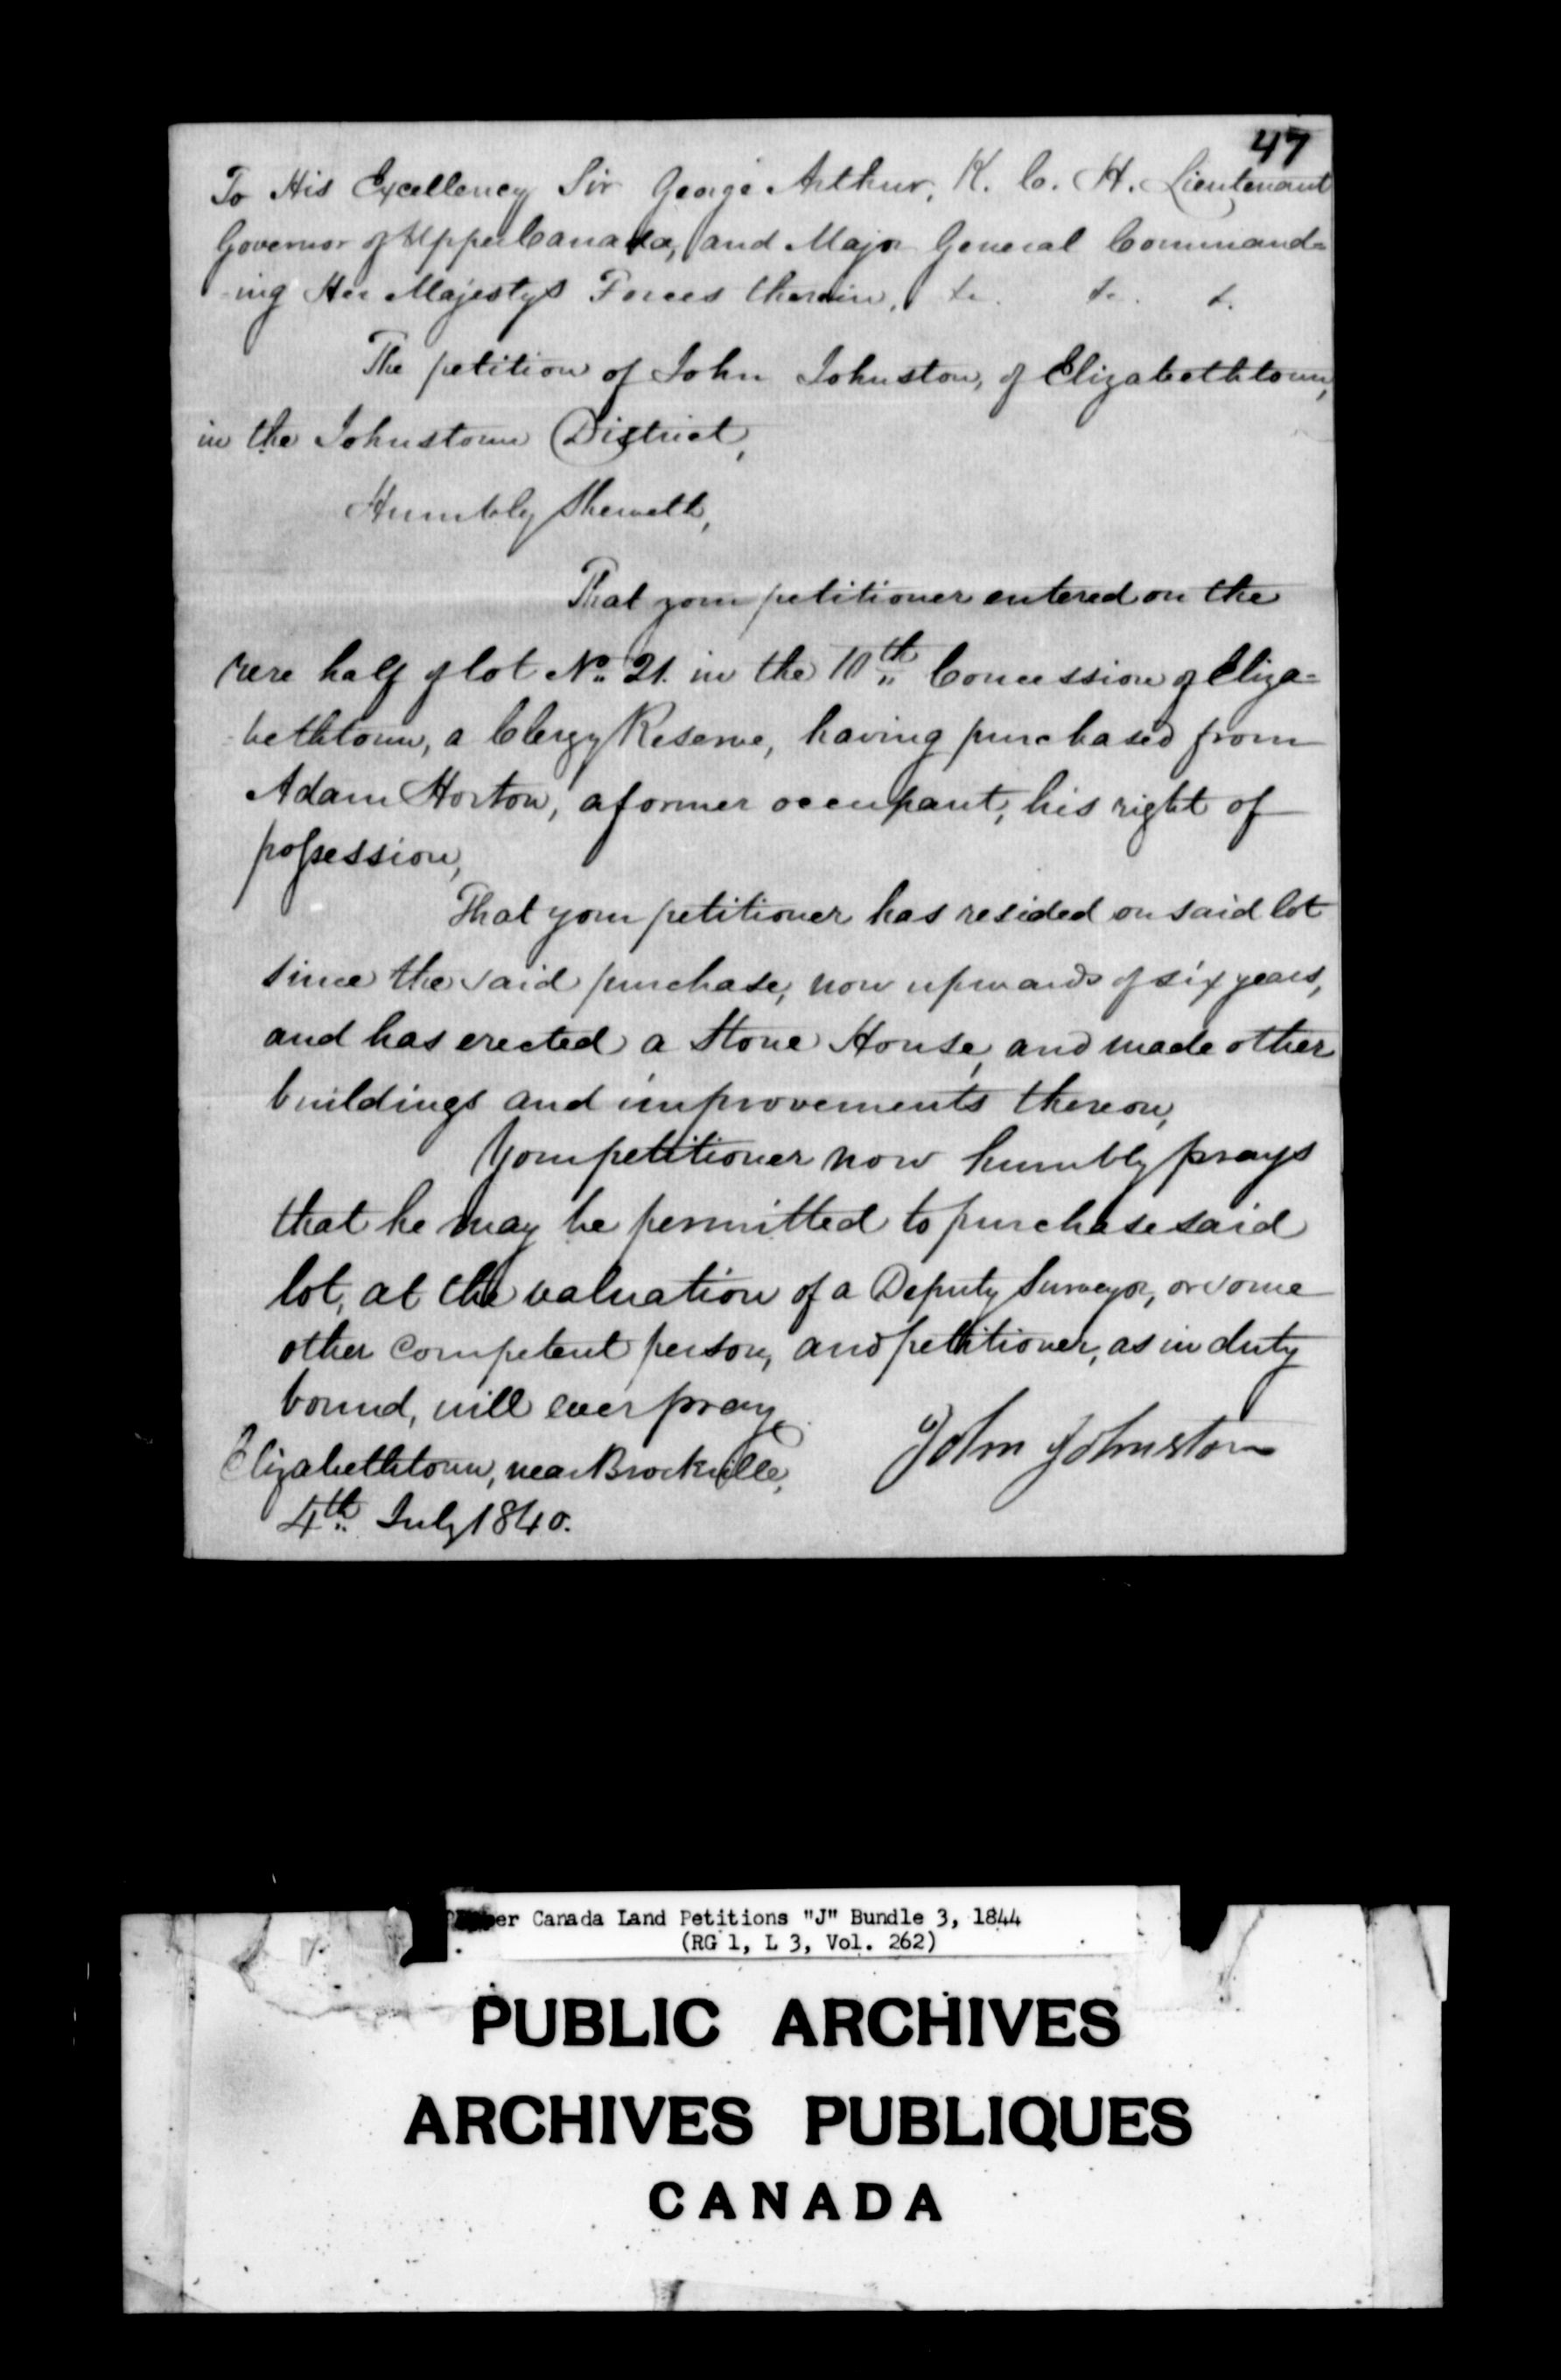 47
To His Excellency Sir George Arthur, K. C. H. Lieutenant
Governor of Upper Canada, and Major General Command=
-ing Her Majestys Forces therein, &c. &c. &.
The petition of John Johnston, of Elizabethtown,
in the Johnstown District,
Humbly Sheweth,
That your petitioner entered on the
rere half of lot No. 21. in the 10th Concession of Eliza=
-bethtown, a Clergy Reserve, having purchased from
Adam Horton, a former occupant, his right of
possession,
That your petitioner has resided on said lot
since the said purchase, now upwards of six years,
and has erected a Stone House, and made other
buildings and improvements thereon,
Your petitioner now humbly prays
that he may be permitted to purchase said
lot, at the valuation of a Deputy Surveyor, or some
other competent person, and petitioner, as in duty
bound, will ever pray.
John Johnston
Elizabethtown, near Brockville,
4th July 1840.
er Canada Land Petitions "J" Bundle 3, 1844
(RG 1, L 3, Vol. 262)
PUBLIC ARCHIVES
ARCHIVES PUBLIQUES
CANADA